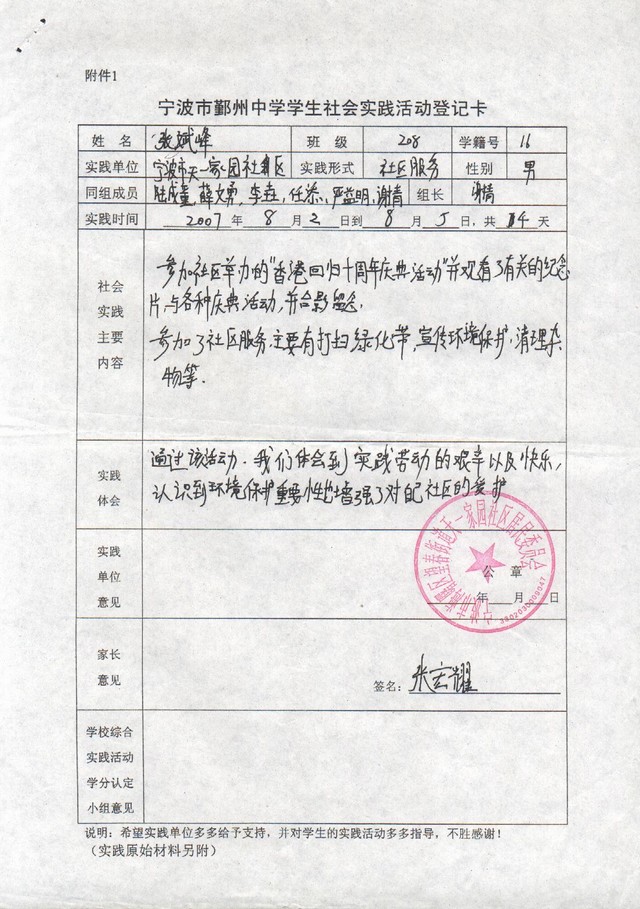 附件1
宁波市鄞州中学学生社会实践活动登记卡
姓 名 张斌峰 班 级 208 学籍号 16
实践单位 宁波市天一家园社区 实践形式 社区服务 性别 男
同组成员 陆成量, 薛文勇, 李垚, 任添, 严益明, 谢倩 组长 谢倩
实践时间 2007 年 8 月 2 日到 8 月 5 日，共 4 天
社会实践主要内容
参加社区举办的"香港回归十周年庆典活动"并观看了有关的纪念
片,与各种庆典活动,并合影留念.
参加了社区服务,主要有打扫绿化带,宣传环境保护,清理杂
物等.
实践体会
通过该活动.我们体会到实践劳动的艰辛以及快乐,
认识到环境保护重要性,增强了对社区的爱护
实践单位意见
公 章
年 月 日
宁波市海曙区望春街道天一家园社区居民委员会
3302030009047
家长意见
签名：张宏耀
学校综合实践活动学分认定小组意见
说明：希望实践单位多多给予支持，并对学生的实践活动多多指导，不胜感谢！
（实践原始材料另附）